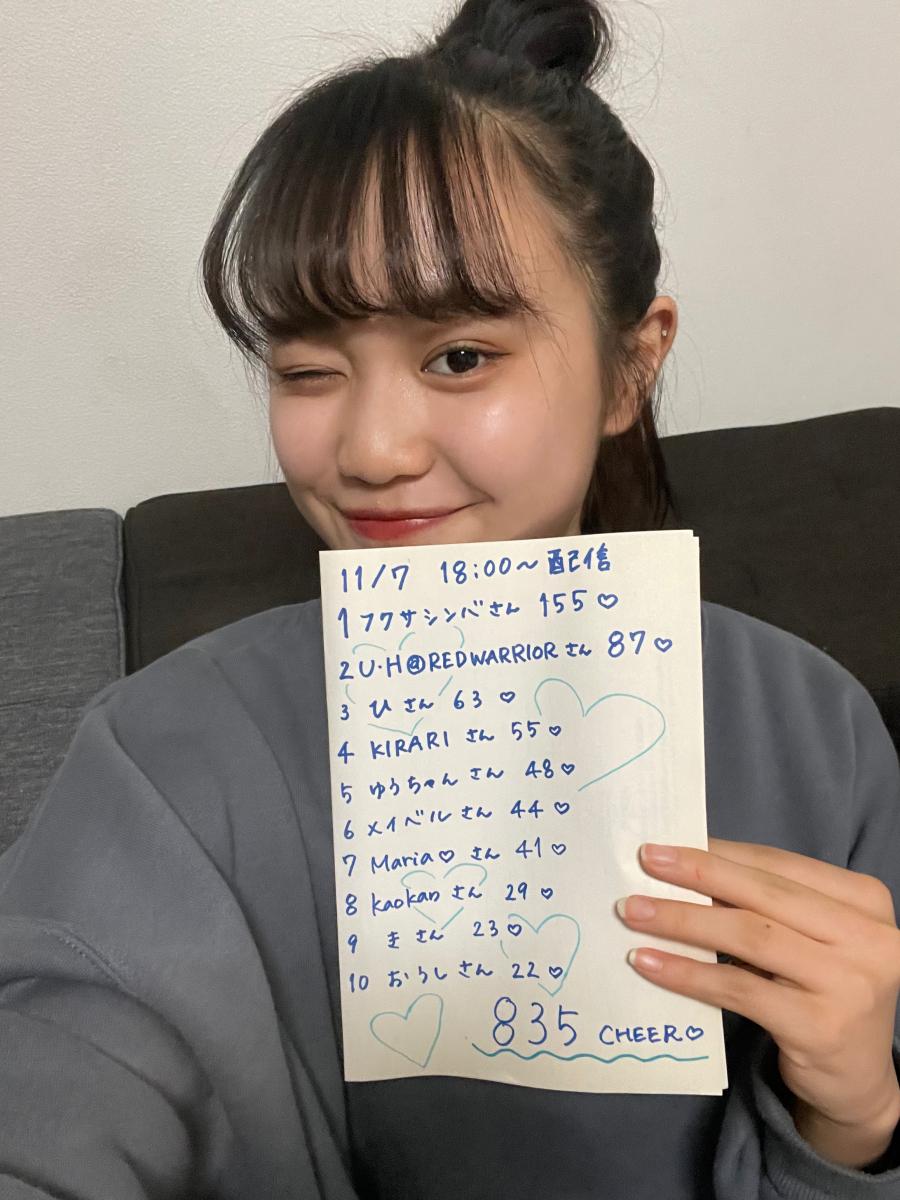 11/7 18:00～配信
1 フワサシンバさん 155♡
2 U・H@REDWARRIORさん 87♡
3 ひさん 63♡
4 KIRARIさん 55♡
5 ゆうちゃんさん 48♡
6 メイベルさん 44♡
7 Maria♡さん 41♡
8 kaokanさん 29♡
9 きさん 23♡
10 おうしさん 22♡
835 CHEER♡